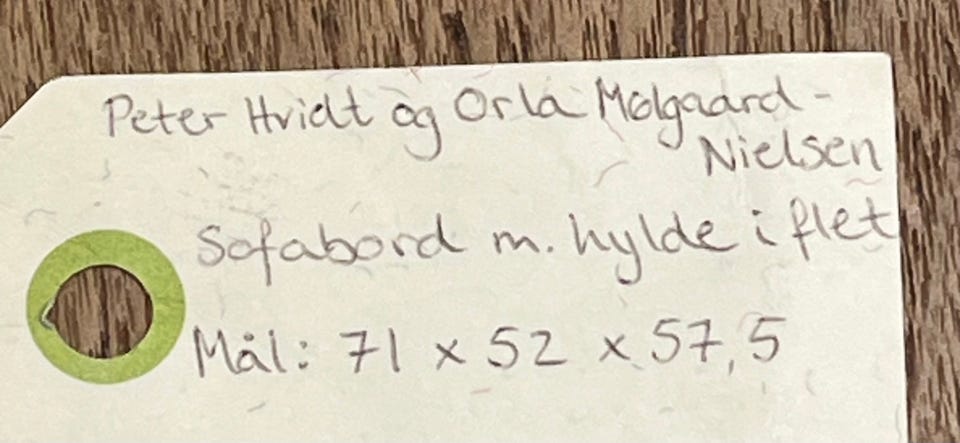 Peter Hvidt og Orla Mølgaard-
Nielsen
Sofabord m. hylde i flet
Mål: 71 x 52 x 57,5